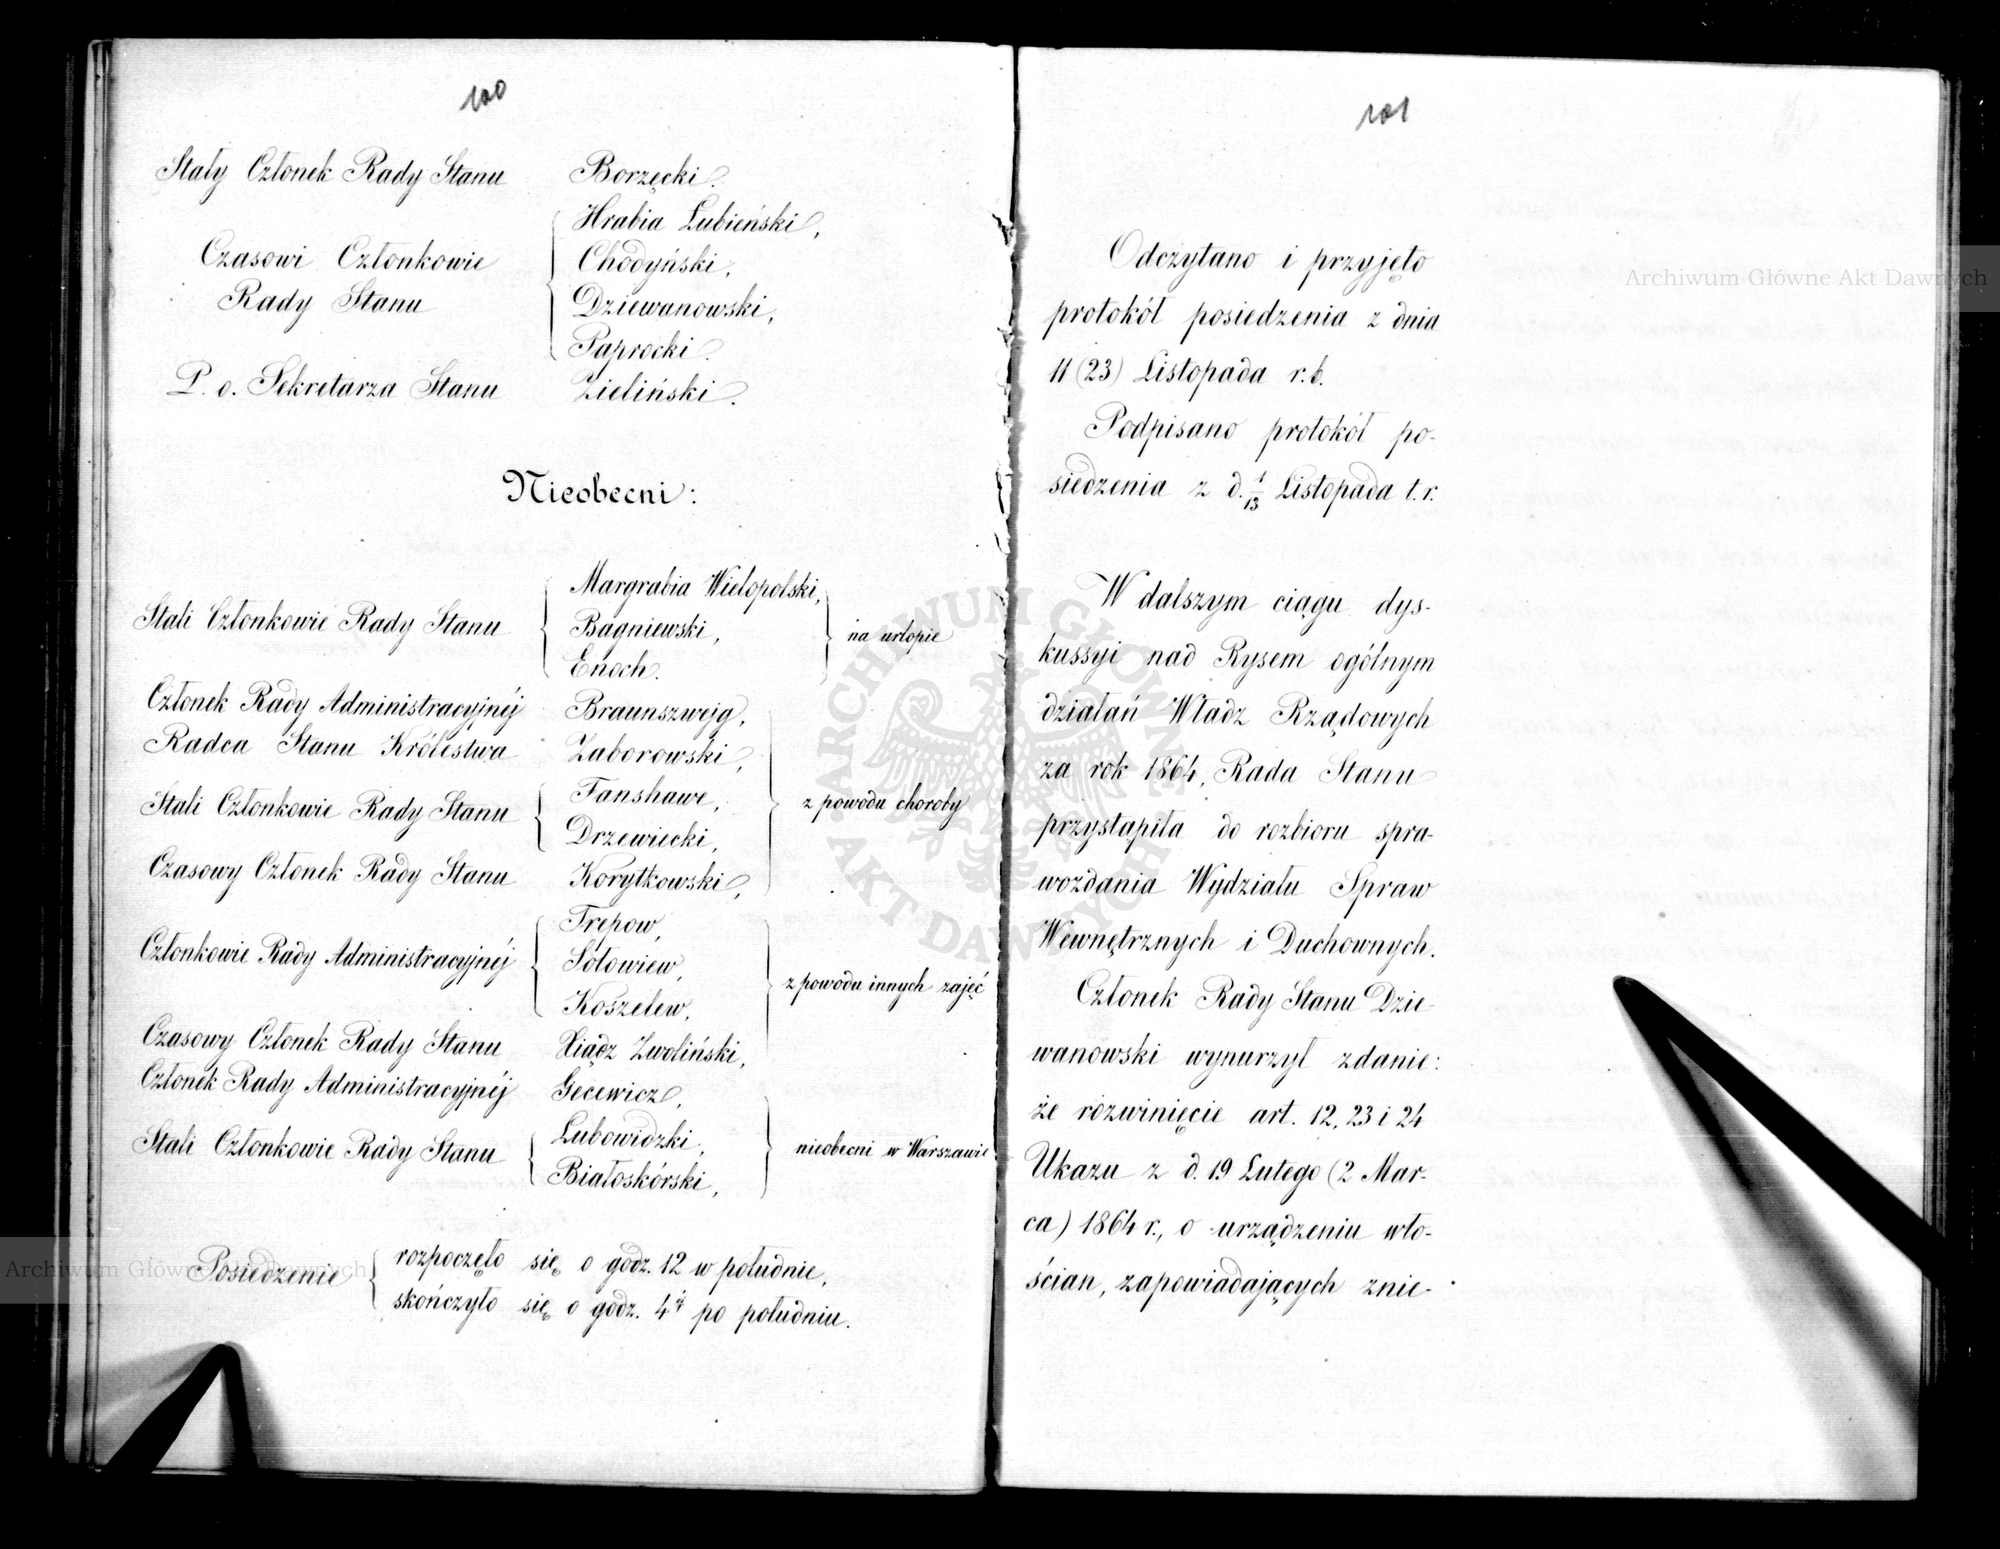 100
Stały Członek Rady Stanu Borzęcki.
Czasowi Członkowie Rady Stanu
Hrabia Łubieński,
Chodyński,
Dziewanowski,
Paprocki.
P. o. Sekretarza Stanu Zieliński.
Nieobecni:
Stali Członkowie Rady Stanu
Margrabia Wielopolski,
Bagniewski,
Enoch.
na urlopie
Członek Rady Administracyjnéj Braunszwejg,
Radca Stanu Królestwa Zaborowski,
Stali Członkowie Rady Stanu
Fanshawe,
Drzewiecki,
Czasowy Członek Rady Stanu Korytkowski,
z powodu choroby
Członkowie Rady Administracyjnéj
Trepow,
Sołowiew,
Koszelew,
Czasowy Członek Rady Stanu Xiądz Zwoliński,
z powodu innych zajęć
Członek Rady Administracyjnéj Gecewicz,
Stali Członkowie Rady Stanu
Lubowidzki,
Białoskórski,
nieobecni w Warszawie
Posiedzenie
rozpoczęło się o godz. 12 w południe,
skończyło się o godz. 4 po południu.
101
Odczytano i przyjęto
protokół posiedzenia z dnia
11 (23) Listopada r. b.
Podpisano protokół po-
siedzenia z d. 1/13 Listopada t. r.
W dalszym ciągu dys-
kussyi nad Rysem ogólnym
działań Władz Rządowych
za rok 1864, Rada Stanu
przystąpiła do rozbioru spra-
wozdania Wydziału Spraw
Wewnętrznych i Duchownych.
Członek Rady Stanu Dzie-
wanowski wynurzył zdanie:
że rozwinięcie art. 12, 23 i 24
Ukazu z d. 19 Lutego (2 Mar-
ca) 1864 r., o urządzeniu wło-
ścian, zapowiadających znie-
Archiwum Główne Akt Dawnych
ARCHIWUM GŁÓWNE AKT DAWNYCH
Archiwum Główne Akt Dawnych